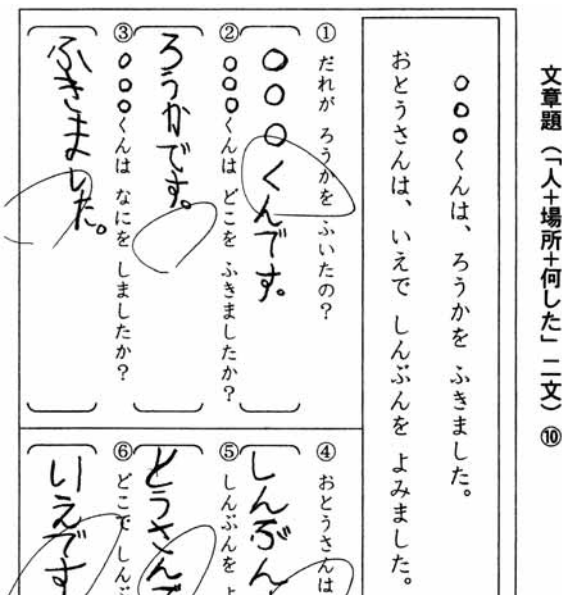 文章題（「人+場所+何した」二文）⑩
○○○くんは、ろうかを ふきました。
おとうさんは、いえで しんぶんを よみました。
① だれが ろうかを ふいたの？
○○○くんです。
② ○○○くんは どこを ふきましたか？
ろうかです。
③ ○○○くんは なにを しましたか？
ふきました。
④ おとうさんは
しんぶん
⑤ しんぶんを よ
とうさんで
⑥ どこで しんぶ
いえです